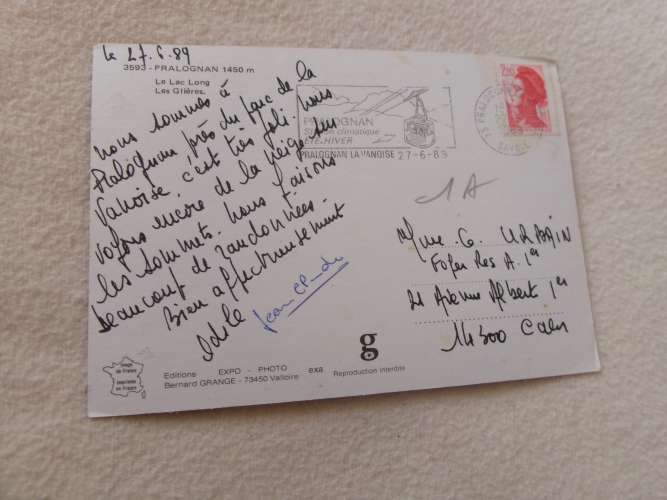 le 27.6.89
3593 - PRALOGNAN 1450 m
Le Lac Long
Les Glières.
nous sommes à
Pralognan, près du parc de la
Vanoise. c'est très joli. nous
voyons encore de la neige sur
les sommets. nous faisons
beaucoup de randonnées.
Bien affectueusement
PRALOGNAN
Station climatique
ETE-HIVER
PRALOGNAN LA VANOISE 27-6-89
2,20
1A
Mme. G. URBAIN
Foyer Res A. 1er
21 Avenue Albert 1er
14300 Caen
g
Editions EXPO - PHOTO exa Reproduction interdite
Bernard GRANGE - 73450 Valloire
Image
de France
Imprimée
en France